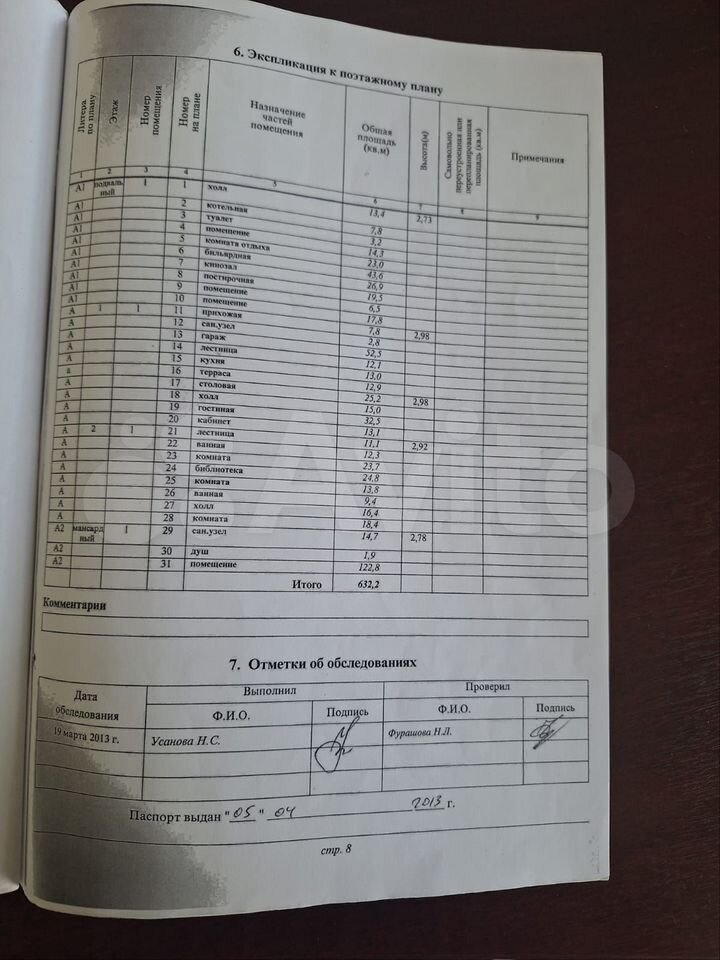 6. Экспликация к поэтажному плану
Литера по плану Этаж Номер помещения Номер на плане Назначение частей помещения Общая площадь (кв.м) Высота(м) Самовольно переустроенная или перепланированная площадь (кв.м) Примечания
1 2 3 4 5 6 7 8 9
А1 подвальный 1 1 холл 13,4 2,73
А1 2 котельная 7,8
А1 3 туалет 3,2
А1 4 помещение 14,3
А1 5 комната отдыха 23,0
А1 6 бильярдная 43,6
А1 7 кинозал 26,9
А1 8 постирочная 19,5
А1 9 помещение 6,5
А1 10 помещение 17,8
А 1 1 11 прихожая 7,8 2,98
А 12 сан.узел 2,8
А 13 гараж 52,5
А 14 лестница 12,1
А 15 кухня 13,0
а 16 терраса 12,9
А 17 столовая 25,2 2,98
А 18 холл 15,0
А 19 гостиная 32,5
А 20 кабинет 13,1
А 2 1 21 лестница 11,1 2,92
А 22 ванная 12,3
А 23 комната 23,7
А 24 библиотека 24,8
А 25 комната 13,8
А 26 ванная 9,4
А 27 холл 16,4
А 28 комната 18,4
А2 мансардный 1 29 сан.узел 14,7 2,78
А2 30 душ 1,9
А2 31 помещение 122,8
Итого 632,2
Комментарии
7. Отметки об обследованиях
Дата обследования Выполнил Проверил
Ф.И.О. Подпись Ф.И.О. Подпись
19 марта 2013 г. Усанова Н.С. Фурашова Н.Л.
Паспорт выдан "05" 04 2013 г.
стр. 8
Avito